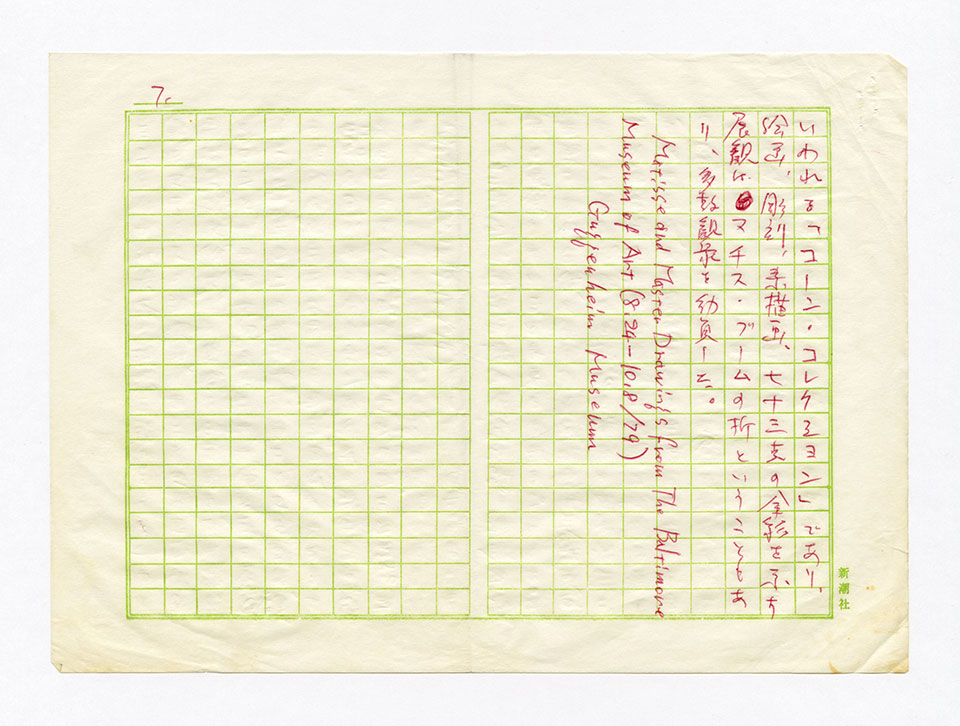 7.
いわれる「コーン・コレクション」であり、
絵画、彫刻、素描画、七十三点の全貌を示す
展観は マチス・ブームの折ということもあ
り、多数観衆を動員した。
Matisse and Master Drawings from The Baltimore
Museum of Art (8.24–10.8/79)
Guggenheim Museum
新潮社